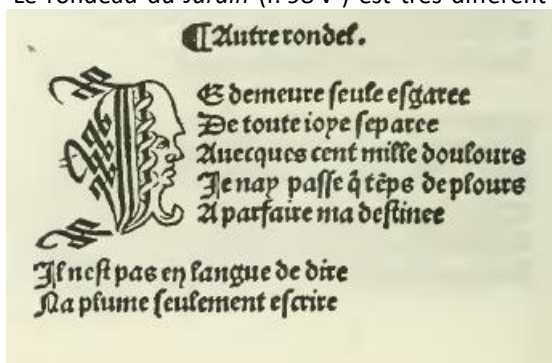 Le rondeau du Jardin (f. 98 v°) est très différent
⁋Autre rondel.
IE demeure seule esgaree
De toute ioye separee
Auecques cent mille doulours
Ie nay passe q̄ tēps de plours
A parfaire ma destinee
Il nest pas en langue de dire
Na plume seulement escrire